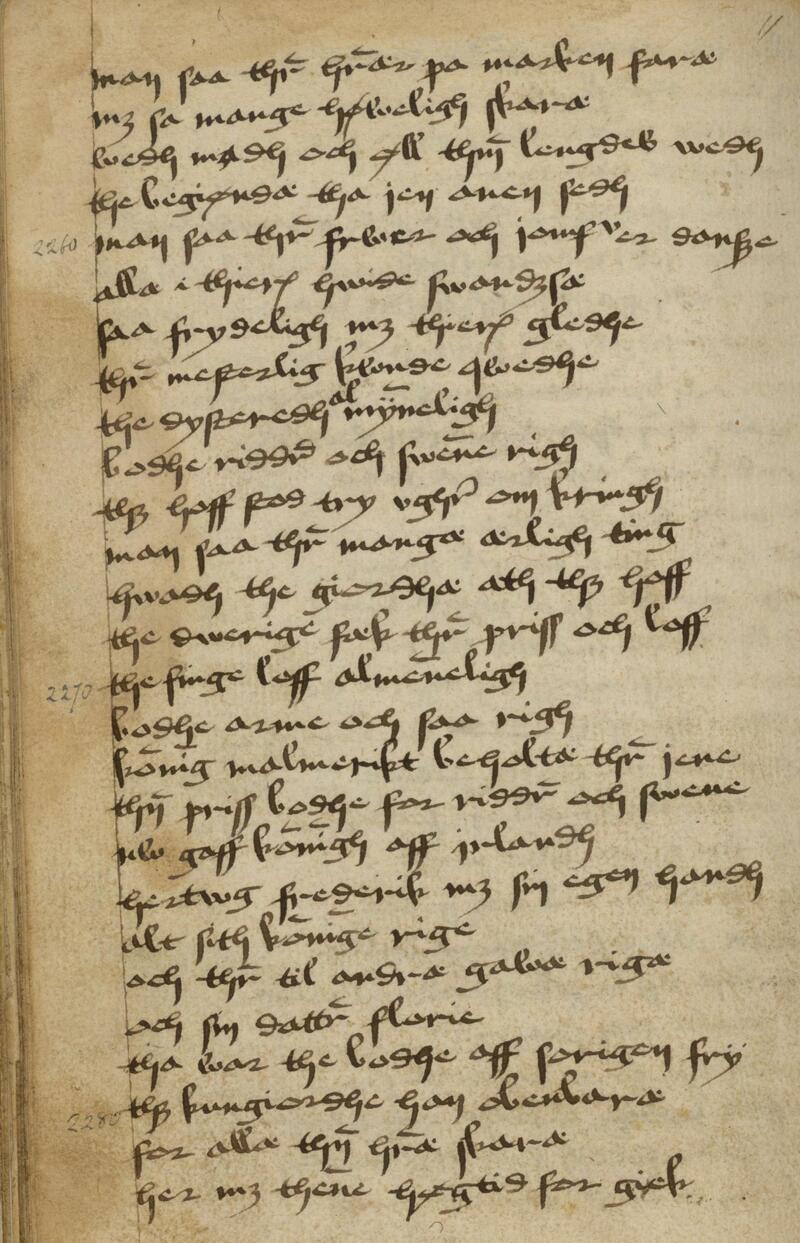 11
man saa thr̄ hr̄ær pa marken faræ
mꝫ sa mange høweligh skaræ
wedh mødh och øll thın̄ lengdeb wedh
the begiøndæ tha jen anen sedh
2260 man saa thr̄ frwer och jomfver danꝭe
allæ i thierꝭ hwide swandꝫsæ
saa frydeligh mꝫ thierꝭ gledhe
thr̄ mesterlig kwnde qwedhe
the dysteredh al mȳneligh
bodhe riddr̄d och swēne righ
thꝭ hoff stod try vghr̄ om kringh
man saa thr̄ mangæ ærligh ting
hwadh the giordhæ ath thꝭ hoff
the dwerige fæk thr̄ priss och loff
2270 the finge loff almēneligh
bodhe arme och saa righ
kōnīg malmerikt beholtæ thr̄ jene
thn̄ priss bodhe for riddr̄ och swene
nw gaff kōnīgh aff jrlandh
hertwg frederik mꝫ sin egen handh
alt sith kōnīge rige
och thr̄ til andræ gawæ rigæ
och sin dattr̄ florie
tha war the bodhe aff sorigen fry
2280 thꝭ kungiordhe han obenbaræ
for allæ thn̄ hr̄æ skaræ
her mꝫ thēne høgtid for giek